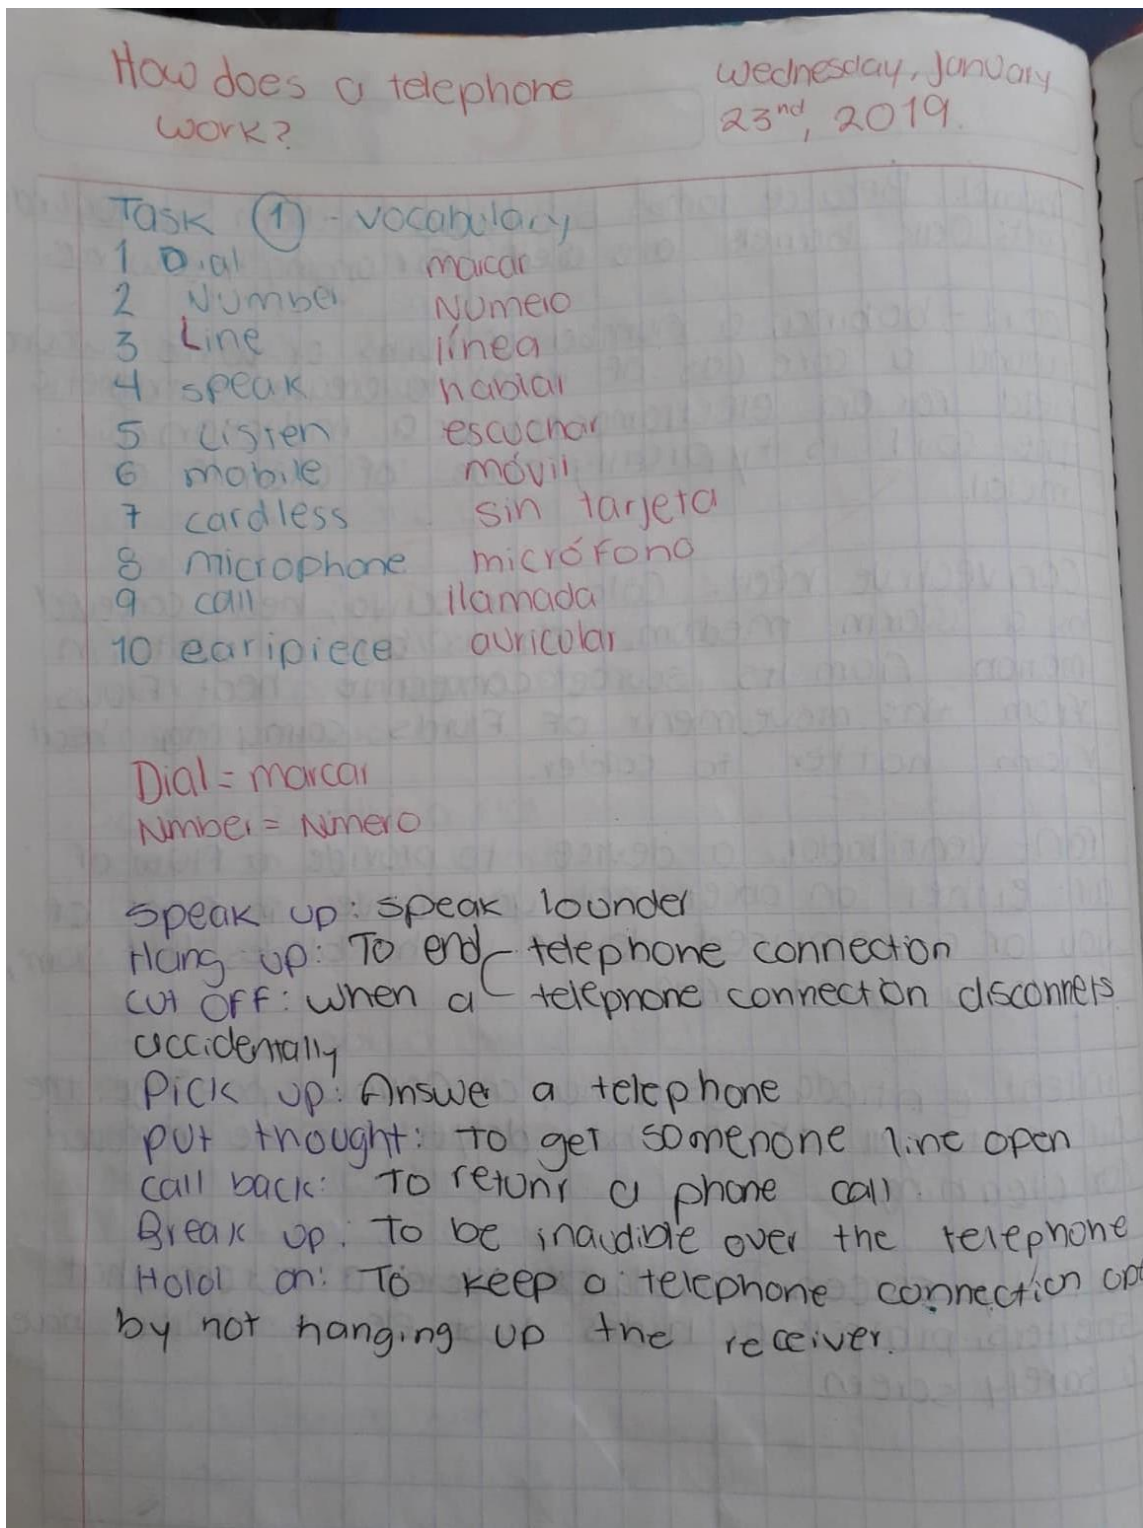 How does a telephone
work?
Wednesday, January
23nd, 2019.
Task 1 - vocabulary
1 Dial marcar
2 Number Numero
3 Line línea
4 speak hablar
5 Listen escuchar
6 mobile móvil
7 cardless sin tarjeta
8 microphone micrófono
9 call llamada
10 earipiece auricular
Dial = marcar
Nmber = Nimero
speak up: speak lounder
Hang up: To end telephone connection
cut off: when a telephone connection disconnets
accidentally
Pick up: Answe a telephone
put thought: to get somenone line open
call back: To retunr a phone call.
Break up: To be inaudible over the telephone
Hold on: To keep a telephone connection
by not hanging up the receiver.